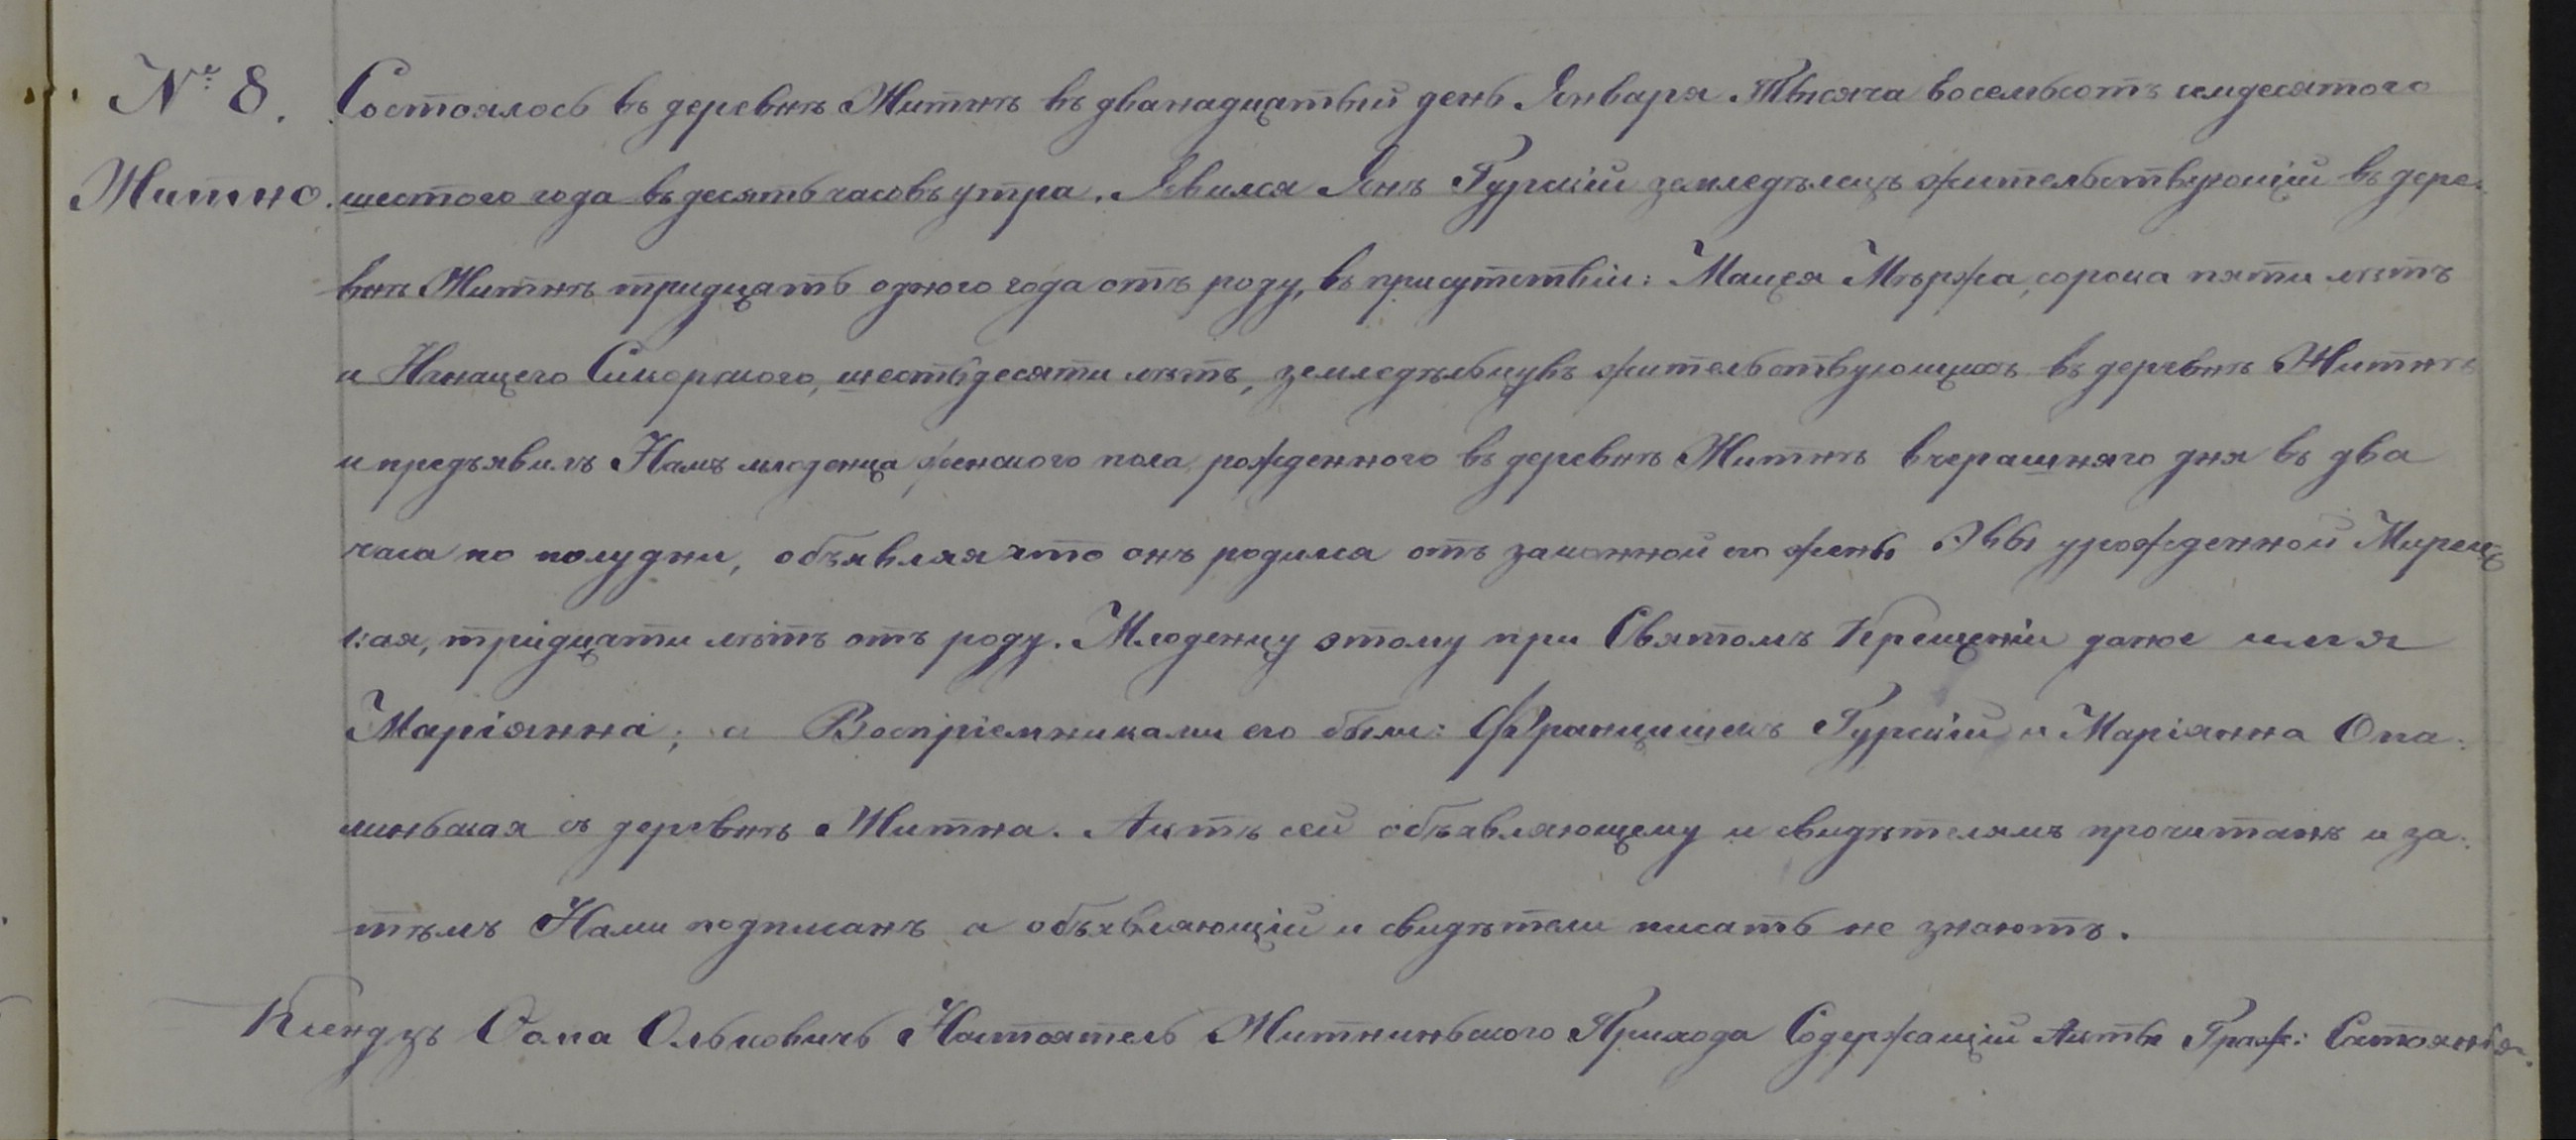 № 8. Состоялось въ деревнѣ Житнѣ въ дванадцатый день Января Тысяча восемьсотъ семдесятого
Житно. шестого года въ десять часовъ утра. Явился Янъ Гурскій земледѣлецъ жительствующій въ дере-
внѣ Житнѣ тридцать одного года отъ роду, въ присутствіи: Мацея Мѣржа, сорока пяти лѣтъ
и Игнацего Сикорского, шестьдесяти лѣтъ, земледѣльцувъ жительствующихъ въ деревнѣ Житнѣ
и предъявилъ Намъ младенца женского пола, рожденного въ деревнѣ Житнѣ вчерашняго дня въ два
часа по полудни, объявляя что онъ родился отъ законной его жены Эвы урожденной Мирец
кая, тридцати лѣтъ отъ роду. Младенцу этому при Святомъ Крещеніи даное имя
Маріянна; а Воспріемниками его были: Францишекъ Гурскій и Маріянна Опа-
линьская съ деревнѣ Житна. Актъ сей объявляющему и свидѣтелямъ прочитанъ и за-
тѣмъ Нами подписанъ а объявляющій и свидѣтели писать не знаютъ.
Ксендзъ Ѳома Ольковичь Настоятель Житниньского Прихода Содержащій Акты Граж: Состоянія.